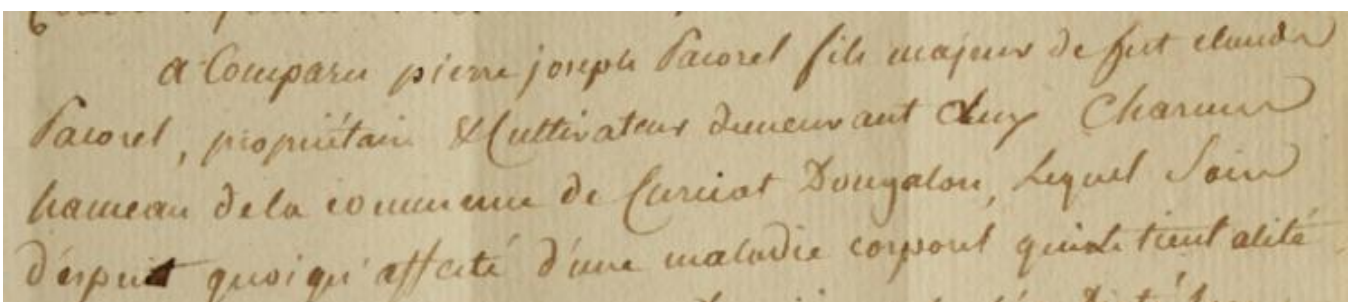 a Comparu pierre joseph Pacorel fils majeur de fut claude
Pacorel, propriétaire & Cultivateur demeurant Chez Charme
hameau de la commune de Curciat Dongalon, Lequel Sain
d'esprit quoiqu'affecté d'une maladie corporel qui le tient alité